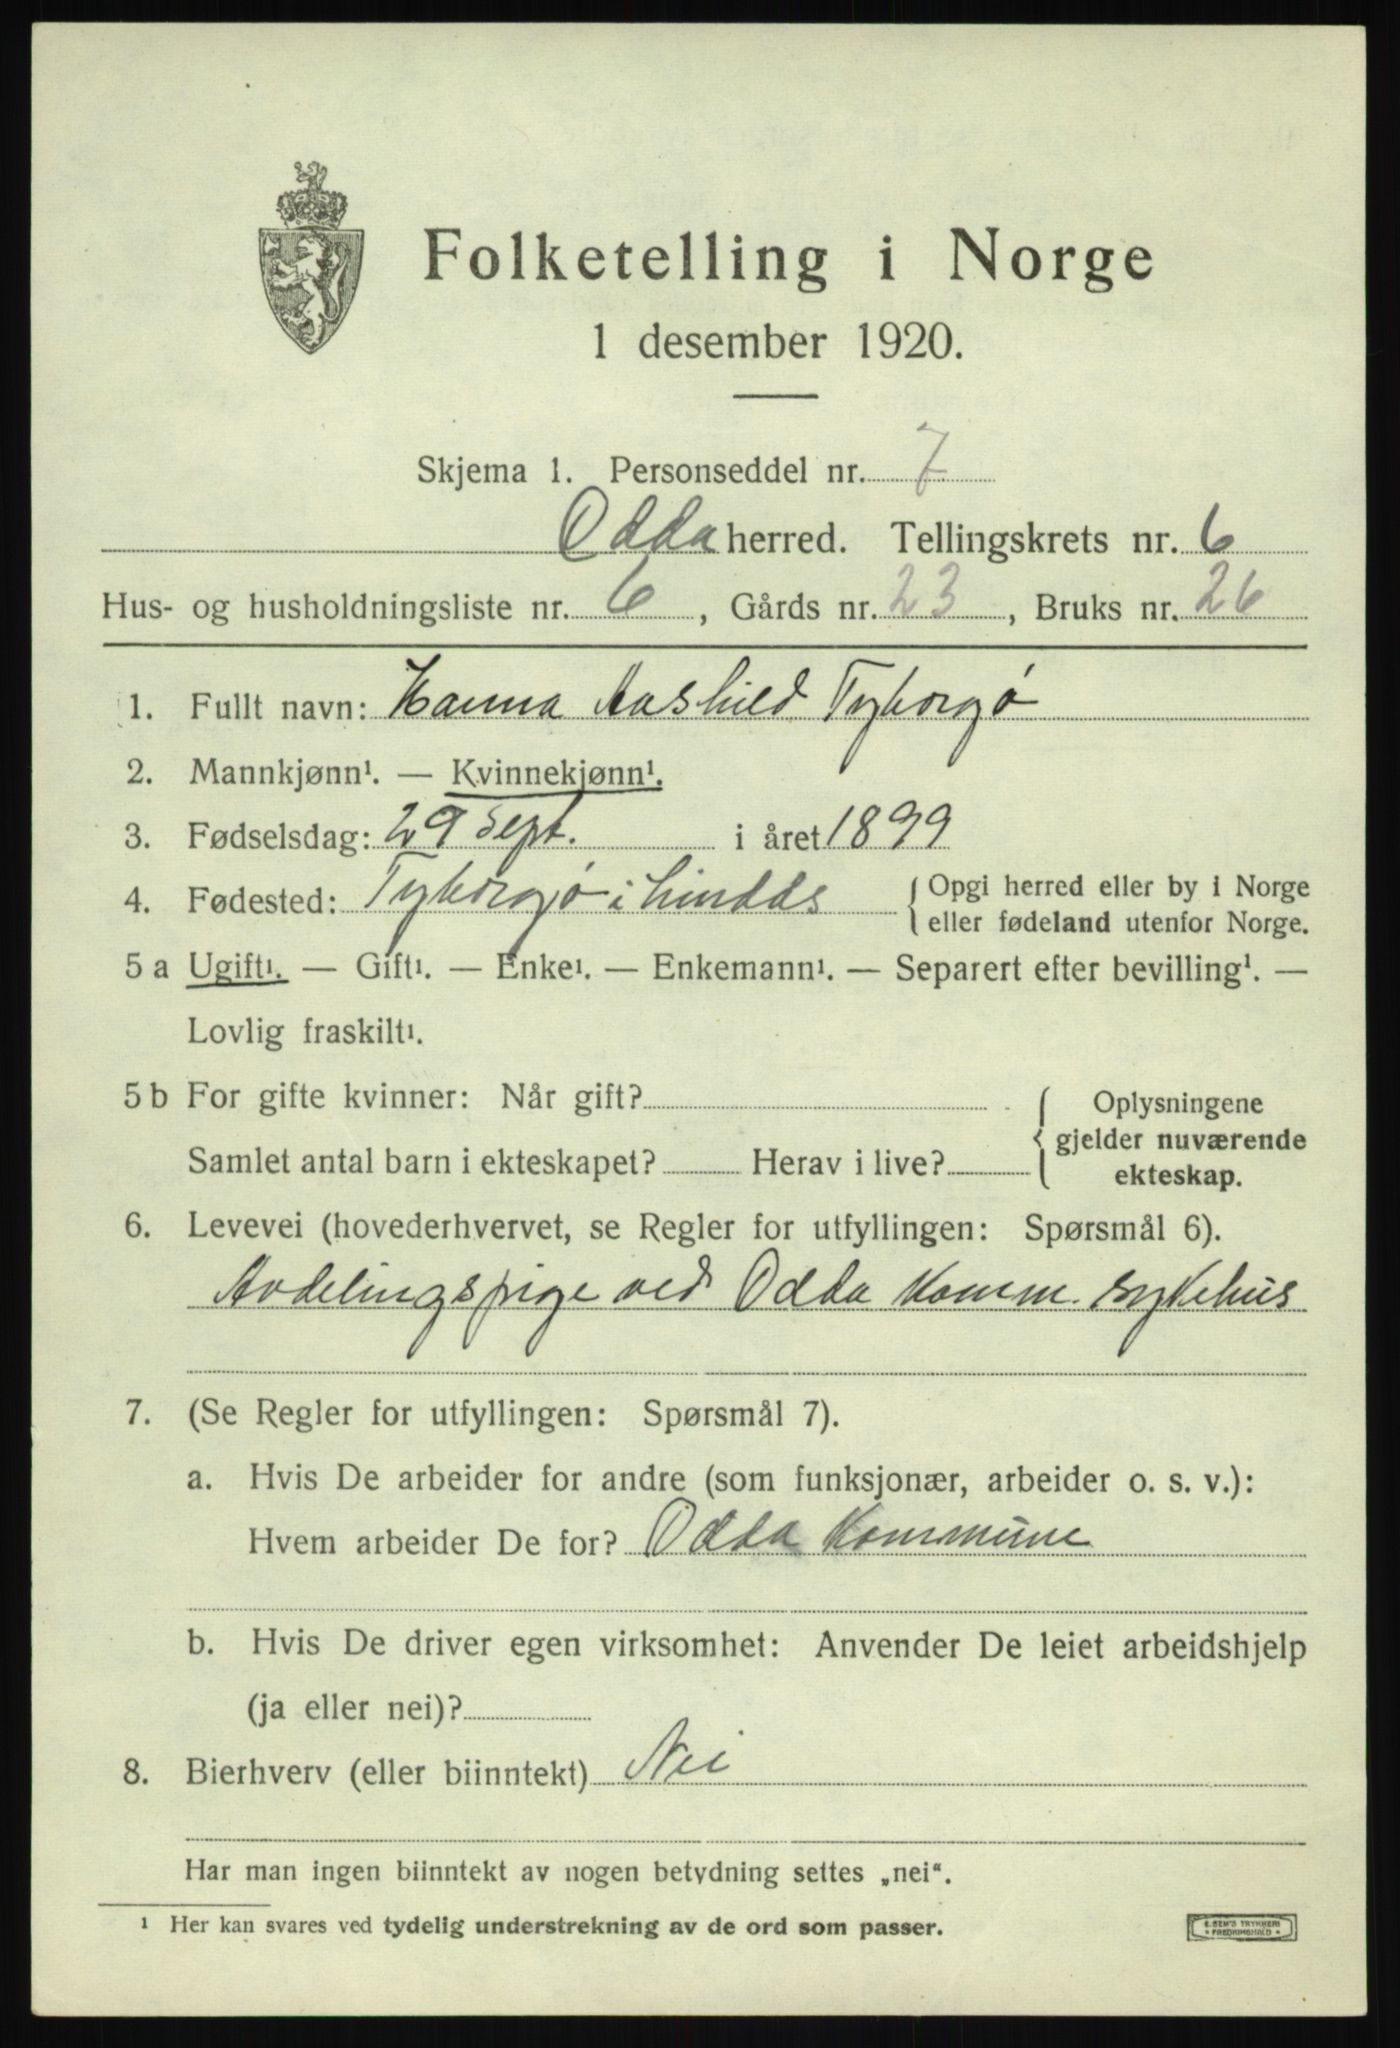 Folketelling i Norge
1 desember 1920.
Skjema 1. Personseddel nr. 7
Odda herred. Tellingskrets nr. 6
Hus- og husholdningsliste nr. 6, Gårds nr. 23, Bruks nr. 26
1. Fullt navn: Hanna Aashild Tyborgø
2. Mannkjønn¹. — Kvinnekjønn¹.
3. Fødselsdag: 29 Sept. i året 1899
4. Fødested: Tyborgø i Lindås { Opgi herred eller by i Norge
eller fødeland utenfor Norge.
5 a Ugift¹. — Gift¹. — Enke¹. — Enkemann¹. — Separert efter bevilling¹. —
Lovlig fraskilt¹.
5 b For gifte kvinner: Når gift? { Oplysningene
gjelder nuværende
ekteskap.
Samlet antal barn i ekteskapet? Herav i live?
6. Levevei (hovederhvervet, se Regler for utfyllingen: Spørsmål 6).
Avdelingspige ved Odda Komm. sykehus
7. (Se Regler for utfyllingen: Spørsmål 7).
a. Hvis De arbeider for andre (som funksjonær, arbeider o. s. v.):
Hvem arbeider De for? Odda Kommune
b. Hvis De driver egen virksomhet: Anvender De leiet arbeidshjelp
(ja eller nei)?
8. Bierhverv (eller biinntekt) Nei
Har man ingen biinntekt av nogen betydning settes „nei“.
¹ Her kan svares ved tydelig understrekning av de ord som passer.
E. SEM'S TRYKKERI
• FREDRIKSHALD •